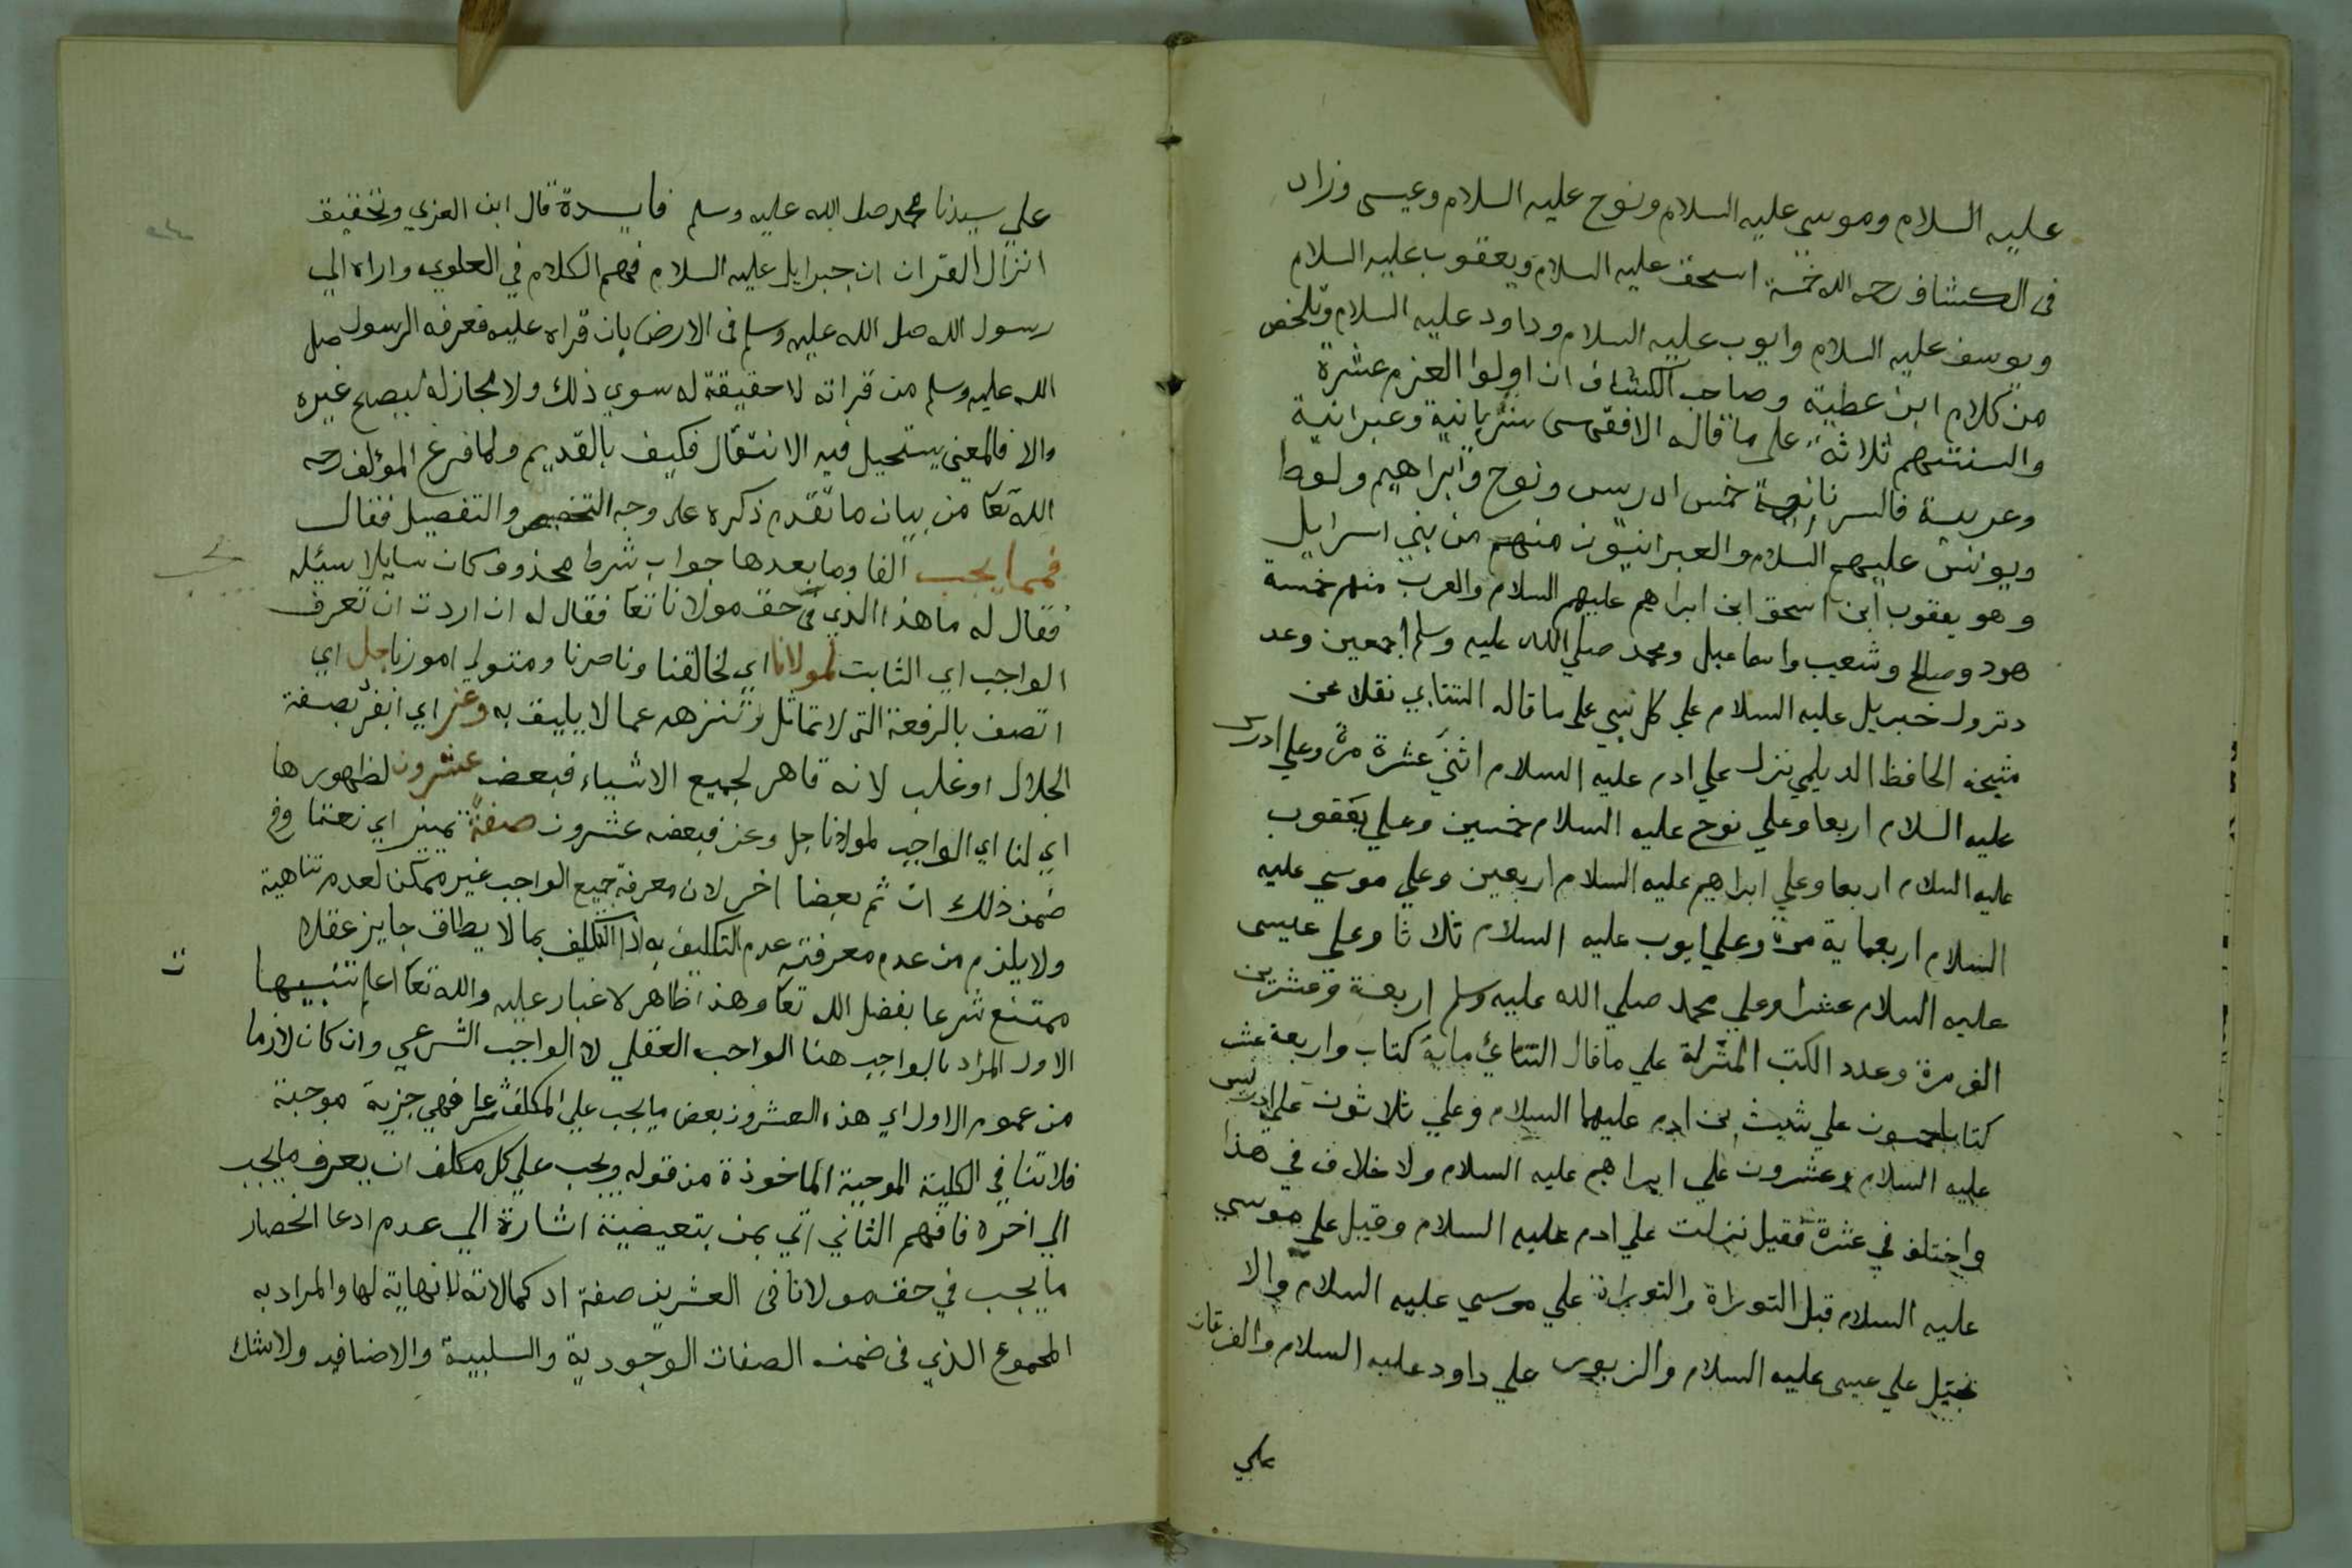 عليه السلام وموسى عليه السلام ونوح عليه السلام وعيسى وزاد
فى الكشاف رحمه الله خمسة اسحق عليه السلام ويعقوب عليه السلام
ويوسف عليه السلام وايوب عليه السلام وداود عليه السلام وتلخص
من كلام ابن عطية وصاحب الكشاف ان اولوا العزم عشرة
والسنتهم ثلاثة على ما قاله الاقفهسى سريانية وعبرانية
وعربية فالسريانية خمس ادريس ونوح وابراهيم ولوط
ويونس عليهم السلام والعبرانيون منهم من بني اسرايل
وهو يعقوب ابن اسحق ابن ابراهيم عليهم السلام والعرب منهم خمسة
هود وصالح وشعيب واسماعيل ومحمد صلي الله عليه وسلم اجمعين وعد
د نزول جبريل عليه السلام علي كل نبي على ما قاله التتاي نقلا عن
شيخه الحافظ الديلمي نزل علي ادم عليه السلام اثنى عشرة مرة وعلي ادريس
عليه السلام اربعا وعلي نوح عليه السلام خمسين وعلي يعقوب
عليه السلام اربعا وعلي ابراهيم عليه السلام اربعين وعلي موسي عليه
السلام اربعماية مرة وعلي ايوب عليه السلام ثلاثا وعلي عيسى
عليه السلام عشرا وعلي محمد صلي الله عليه وسلم اربعة وعشرين
الف مرة وعدد الكتب المنزلة علي ما قال التتائي ماية كتاب واربعة عشر
كتابا خمسون علي شيث بن ادم عليهما السلام وعلي ثلاثون علي ادريس
عليه السلام وعشرون علي ابراهيم عليه السلام ولا خلاف في هذا
واختلف في عشرة فقيل نزلت علي ادم عليه السلام وقيل علي موسي
عليه السلام قبل التوراة والتوراة علي موسي عليه السلام والا
نجيل علي عيسى عليه السلام والزبور علي داود عليه السلام والفرقان
علي
علي سيدنا محمد صلى الله عليه وسلم فايدة قال ابن العربي وتحقيق
انزال القران ان جبرايل عليه السلام فهم الكلام في العلوي واداه الي
رسول الله صلى الله عليه وسلم فى الارض بان قراه عليه فعرفه الرسول صلى
الله عليه وسلم من قراته لا حقيقة له سوي ذلك ولا مجاز له يصح غيره
والا فالمعني يستحيل فيه الانتقال فكيف بالقديم ولما فرغ المؤلف رحمه
الله تعا من بيان ما تقدم ذكره على وجه التخصيص والتفصيل فقال
فمما يجب الفا وما بعدها جواب شرط محذوف كان سايلا سيله
فقال له ما هذا الذي في حق مولانا تعا فقال له ان اردت ان تعرف
الواجب اي الثابت لمولانا اي لخالقنا وناصرنا ومتولي امورنا جل اي
اتصف بالرفعة التى لا تماثل وتنزهه عما لا يليق به وعز اي انفرد بصفة
الجلال او غلب لانه قاهر لجميع الاشياء فبعض عشرون لظهورها
اي لنا اي الواجب لمولانا جل وعز فبعضه عشرون صفة تمييز اي نعتا وفي
ضمن ذلك ان ثم بعضا اخر لان معرفة جميع الواجب غير ممكن لعدم تناهية
ولا يلزم من عدم معرفته عدم التكليف به اذ التكليف بما لا يطاق جايز عقلا
ممتنع شرعا بفضل الله تعا وهذا ظاهر لا غبار عليه والله تعا اعلم تنبيها
ت
الاول المراد بالواجب هنا الواجب العقلي لا الواجب الشرعي وان كان لازما
من عموم الاول اي هذه العشرون بعض ما يجب علي المكلف شرعا فهي جزية موجبة
فلا تنافي الكلية الموجبة الماخوذة من قوله ويجب علي كل مكلف ان يعرف ما يجب
الي اخره فافهم الثاني اتي بمن بتعيضية اشارة الي عدم ادعا انحصار
ما يجب في حق مولانا فى العشرين صفة اذ كمالاته لا نهاية لها والمراد به
المجموع الذي فى ضمنه الصفات الوجودية والسلبية والاضافيه ولا شك